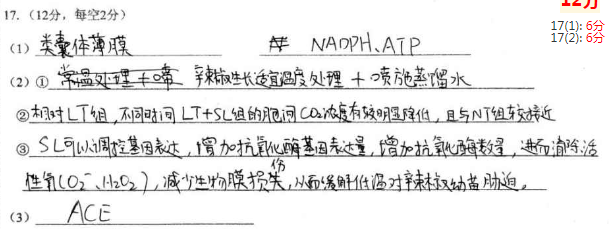 17.（12分，每空2分）
12分
17(1): 6分
17(2): 6分
(1) 类囊体薄膜 NADPH、ATP
(2) ① 辣椒生长适宜温度处理 + 喷施蒸馏水
② 相对LT组，不同时间LT+SL组的胞间CO₂浓度有较明显降低，且与NT组较接近
③ SL可以调控基因表达，增加抗氧化酶基因表达量，增加抗氧化酶数量，进而清除活
性氧(O₂⁻、H₂O₂)，减少生物膜损伤，从而缓解低温对辣椒幼苗胁迫。
(3) ACE